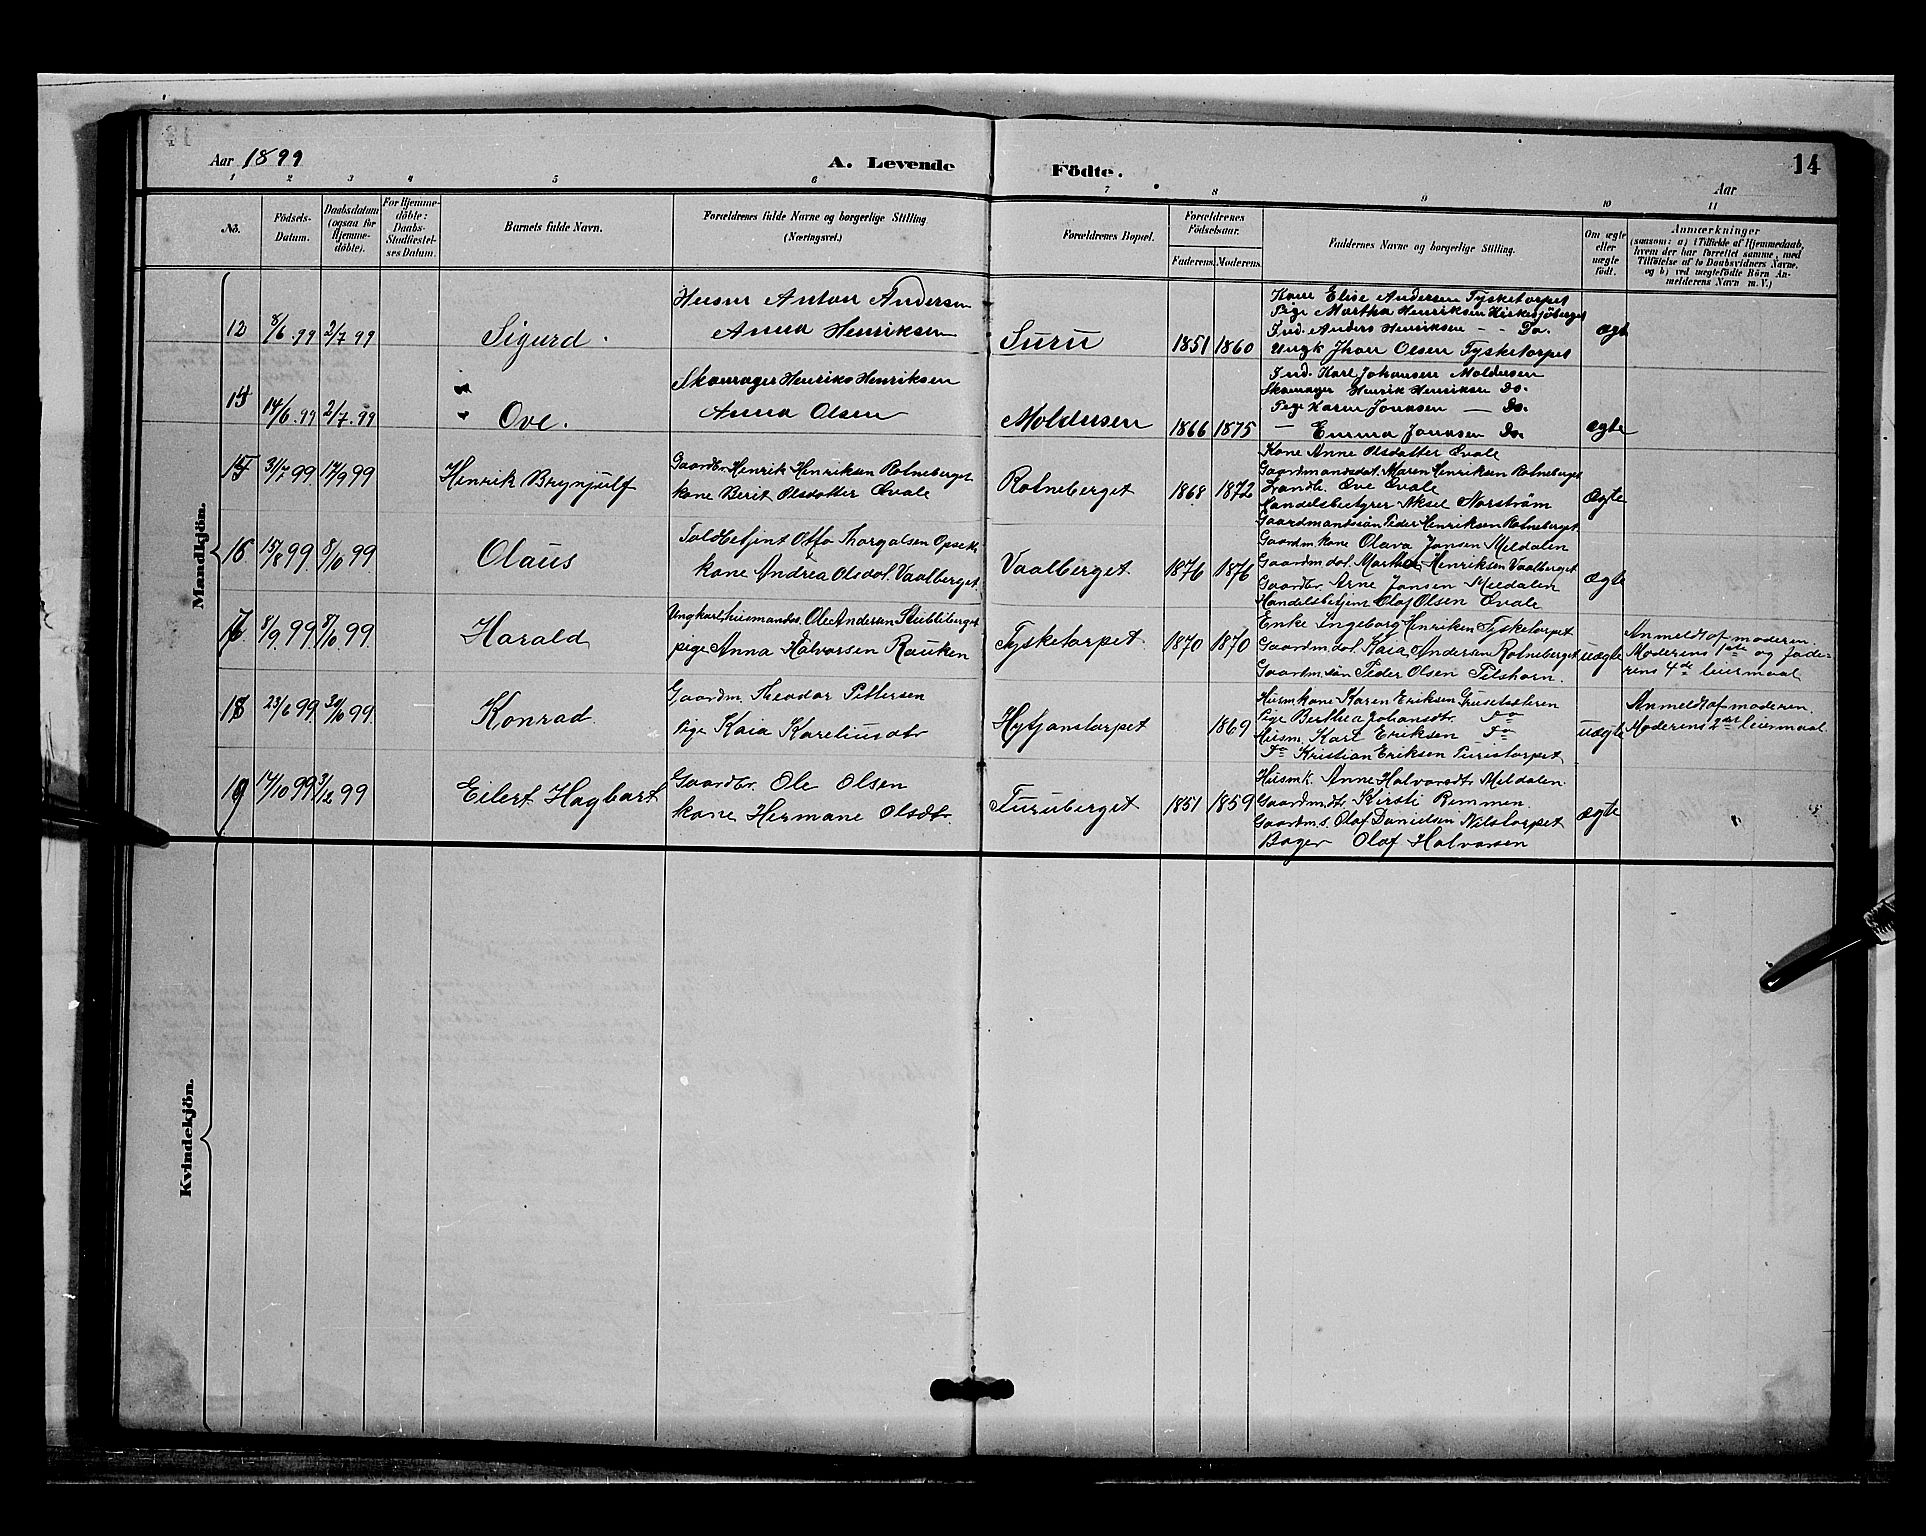 Aar 1899
A. Levende
Födte.
14
Aar
1 2 3 4 5 6 7 8 9 10 11
No.
Födsels-
Datum.
Daabsdatum
(ogsaa for
Hjemme-
döbte).
For Hjemme-
döbte:
Daabs-
Stadfæstel-
ses Datum.
Barnets fulde Navn.
Forældrenes fulde Navne og borgerlige Stilling
(Næringsvei.)
Forældrenes Bopæl.
Forældrenes
Födselsaar.
Faderens. Moderens.
Faddernes Navne og borgerlige Stilling.
Om ægte
eller
uægte
födt.
Anmærkninger
(saasom: a) i Tilfælde af Hjemmedaab,
hvem der har forrettet samme, med
Tilföielse af to Daabsvidners Navne,
og b) ved uægtefödte Börn An-
melderens Navn m. V.)
Mandkjön.
8/6 .99 2/7 99
Sigurd.
Husm Anton Andersen
Anna Henriksen
Suru
1851 1860
Kone Elise Andersen Tysketorpet
Pige Martha Henriksen
Ind. Anders Henriksen - - Do.
Ungk Jhon Olsen Tysketorpet
ægte
14/6 .99 2/7 .99
Ove.
Skomager Henriks Henriksen
Anna Olsen
Moldusen
1866 1875
Ind. Karl Johansen Moldusen
Skomager Henrik Henriksen do.
Pige Karen Jonasen — Do.
— Emma Jonasen Do.
ægte
15 31/7 99 17/9 99
Henrik Brynjulf
Gaardbr. Henrik Henriksen Rotneberget
kone Berit Olsdatter Qvale
Rotneberget
1868 1872
Kone Anne Olsdatter Qvale
Gaardmandsdat. Maren Henriksen Rotneberget
Landh. Ove Qvale
Handelsbestyrer Aksel Norström
Gaardmandssön Peder Henriksen Rotneberget.
ægte
16 15/8 99 8/10 99
Olaus
Toldbetjent Otto Thorvalsen
kone Andrea Olsdat. Vaalberget
Vaalberget
1876 1876
Gaardm. kone Olava Jansen Meldalen
Gaardm dat. Martha Henriksen Vaalberget
Gaardbr Arne Jansen Meldalen
Handelsbetjen Olaf Olsen Qvale
ægte
17 8/9 99 8/10 99.
Harald
Ungkarl, husmandss. Ole Andersen Stubliberget
pige Anna Halvorsen Rauken
Tysketorpet
1870 1870
Enke Ingeborg Henriksen Tysketorpet
Gaardm. dat. Kaia Andersen Rotneberget
Gaardm. sön Peder Olsen Pilshorn.
uægte
Anmeldt af moderen
Moderens 1ste og fade-
rens 4de leiermaal
18 23/6 99 30/10 99.
Konrad.
Gaardm. Theodor Pettersen
Pige Kaia Kareliusdtr
Hytjanstorpet
1869
Husmkone Karen Eriksen
Pige Berthea Johansdtr. Do
Husm. Karl Eriksen Do
Do Kristian Eriksen Puristorpet
uægte
Anmeldt af moderen.
Moderens 2det leiermaal.
19 17/10 99 3/12 99
Eilert Hagbart
Gaardbr. Ole Olsen
kone Hermane Olsdtr.
Turuberget
1851 1859
Husmk. Anne Halvorsdtr Meldalen
Gaardmdtr Kirsti Remmen
Gaardm.s. Olaf Danielsen Nilstorpet
Bager Olaf Halvorsen
ægte
Kvindekjön.